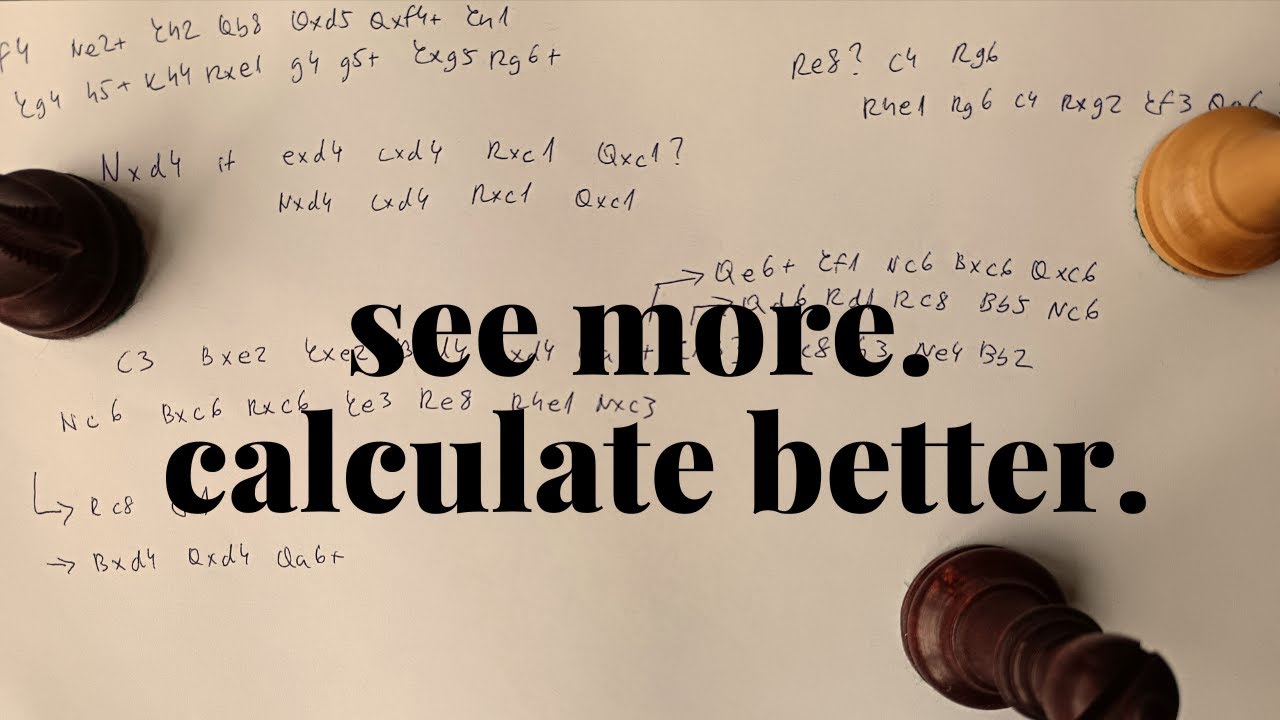 f4 Ne2+ Kh2 Qb8 Qxd5 Qxf4+ Kh1
Kg4 h5+ Kh4 Rxe1 g4 g5+ Kxg5 Rg6+
Re8? c4 Rg6
Rhe1 Rg6 c4 Rxg2 Kf3
Nxd4 if exd4 cxd4 Rxc1 Qxc1?
Nxd4 cxd4 Rxc1 Qxc1
→ Qe6+ Kf1 Nc6 Bxc6 Qxc6
→ Qd6 Rd1 Rc8 Bb5 Nc6
see more.
C3 Bxe2 Kxe2 Ne4 Bb2
Nc6 Bxc6 Rxc6 Ke3 Re8 Rhe1 Nxc3
calculate better.
→ Rc8
→ Bxd4 Qxd4 Qa6+